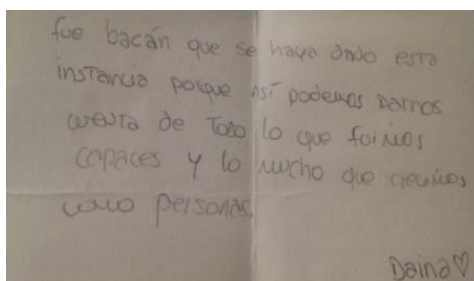 fue bacán que se haya dado esta
instancia porque así podemos darnos
cuenta de todo lo que fuimos
capaces y lo mucho que crecimos
como personas.
Daina♡